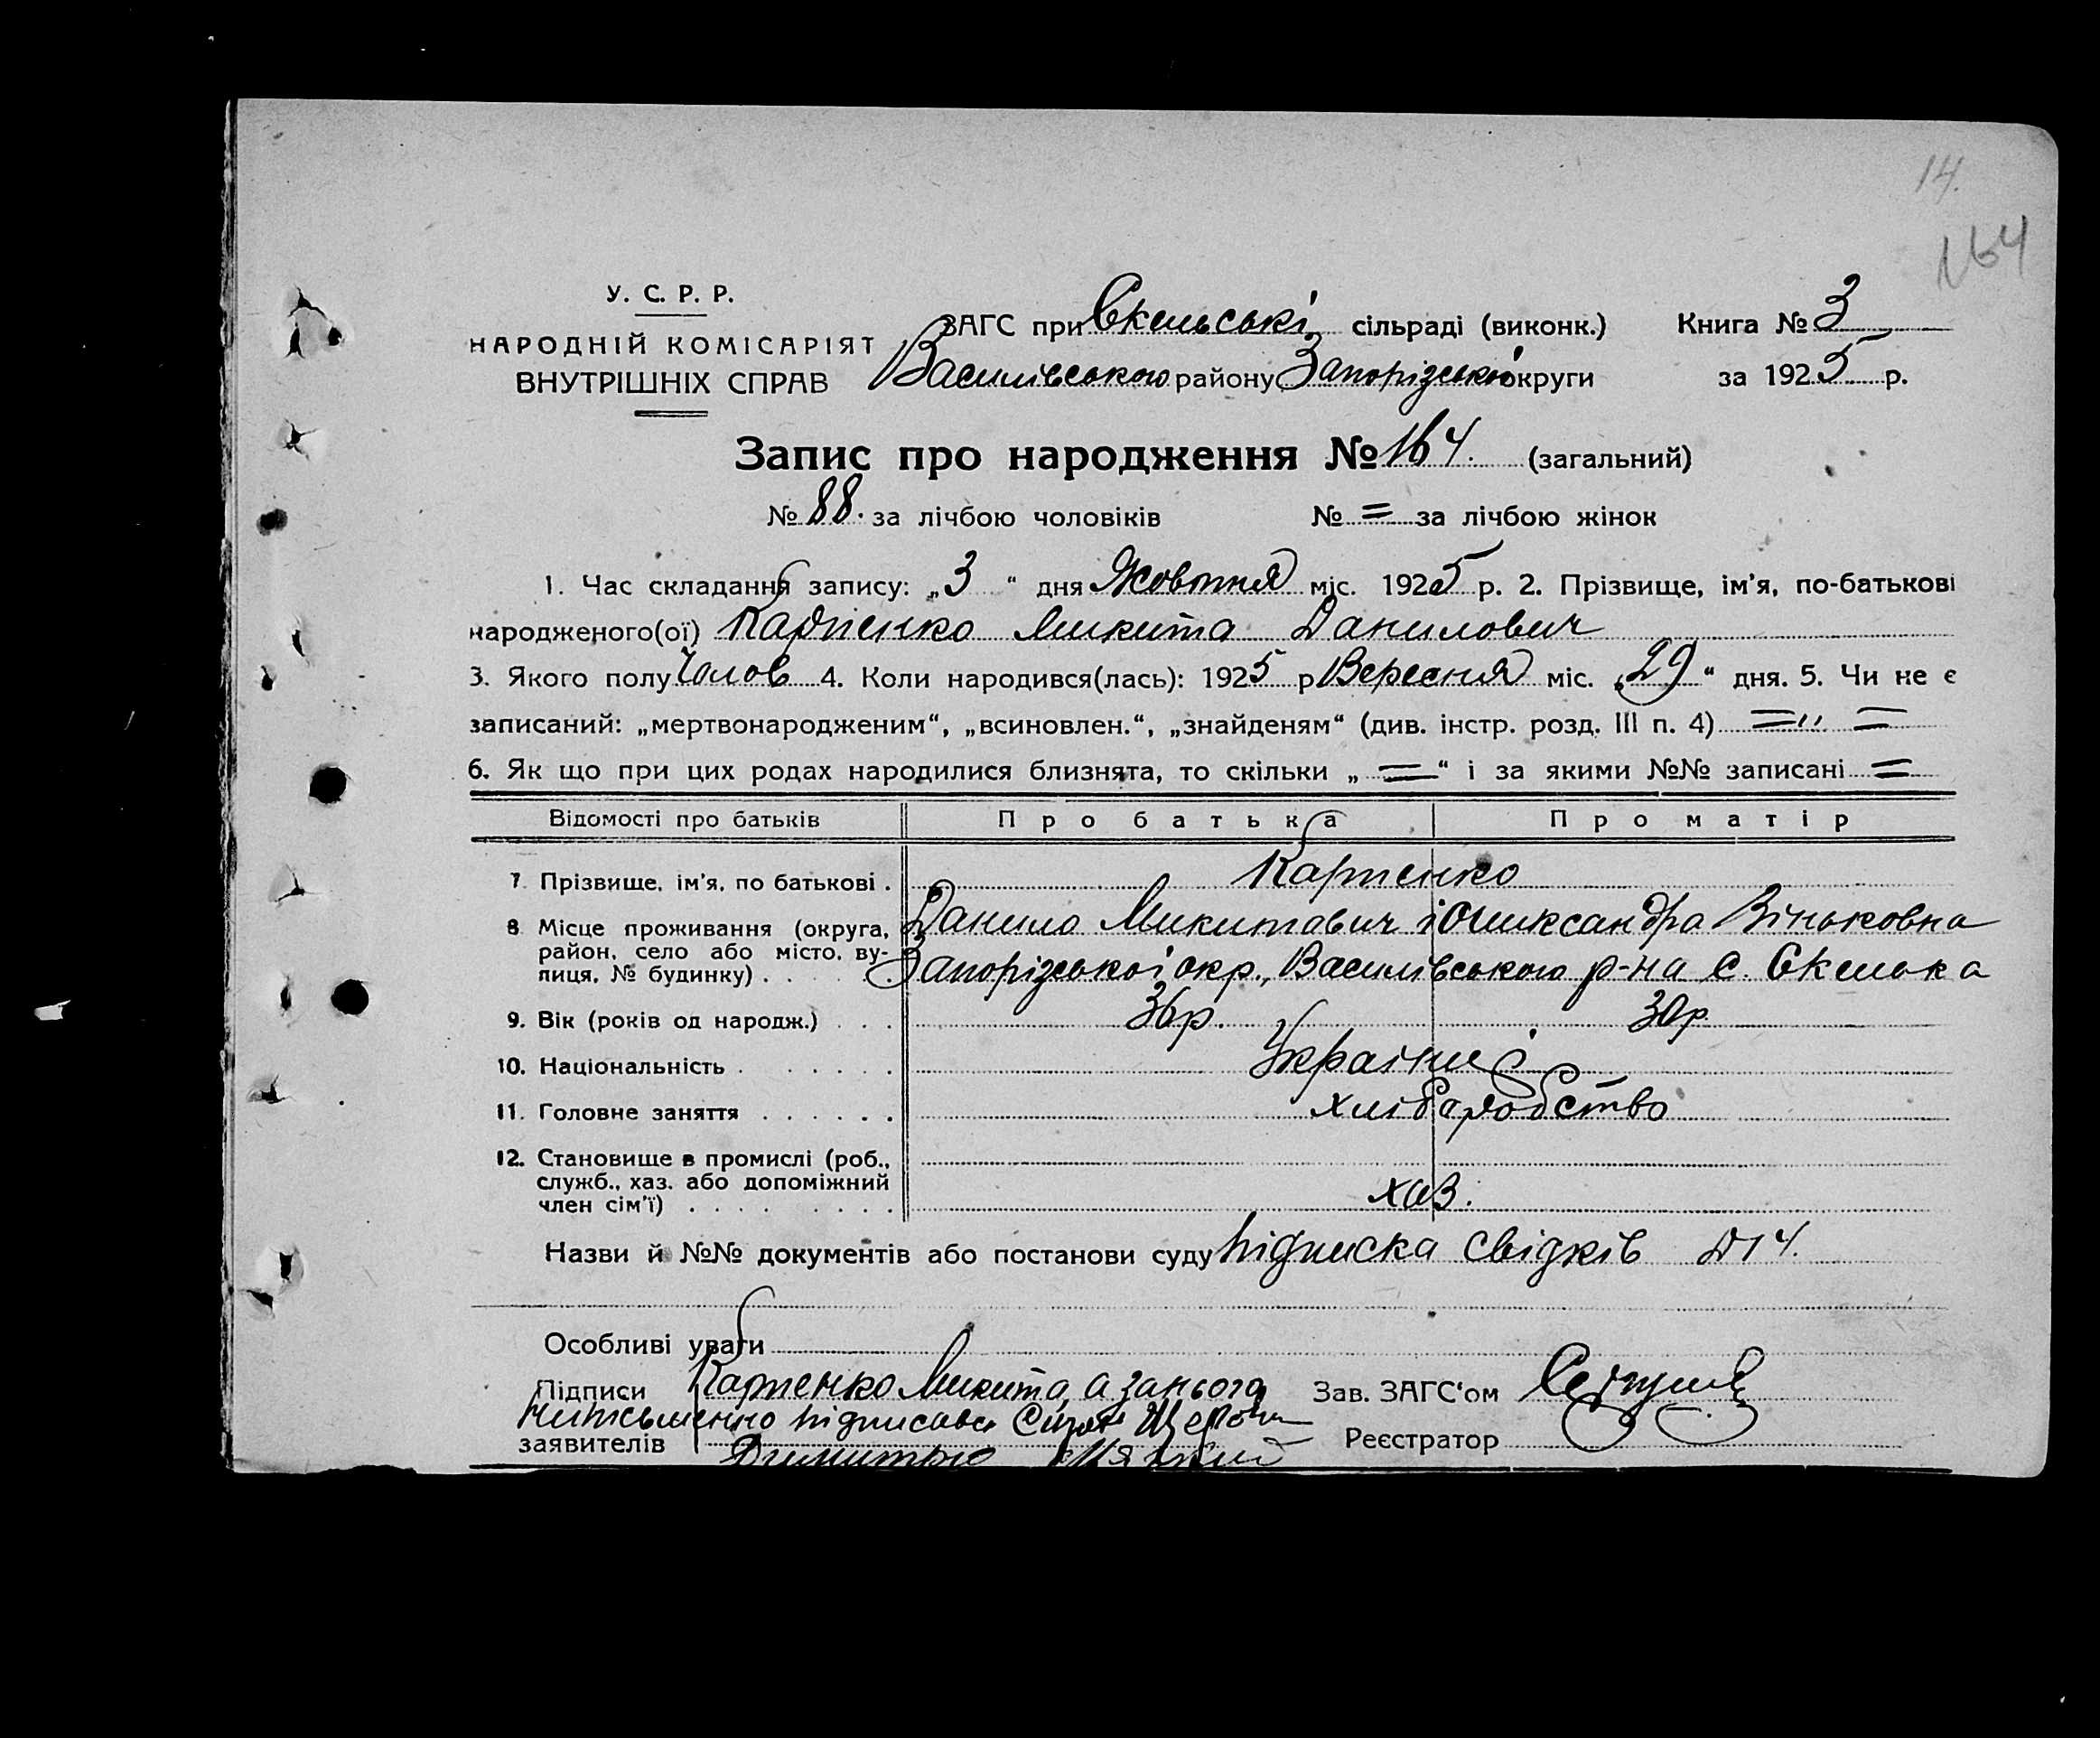 14.
164
У. С. Р. Р.
НАРОДНІЙ КОМІСАРІЯТ
ВНУТРІШНІХ СПРАВ
ЗАГС при Скельські сільраді (виконк.) Книга № 3
Василівського району Запорізької округи за 1925 р.
Запис про народження № 164. (загальний)
№ 88. за лічбою чоловіків № = за лічбою жінок
1. Час складання запису: „3“ дня Жовтня міс. 1925 р. 2. Прізвище, ім'я, по-батькові
народженого(ої) Карпенко Микита Данилович
3. Якого полу Чолов 4. Коли народився(лась): 1925 р Вересня міс. „29“ дня. 5. Чи не є
записаний: „мертвонародженим“, „всиновлен.“, „знайденям“ (див. інстр. розд. III п. 4) = „ =
6. Як що при цих родах народилися близнята, то скільки „ = “ і за якими №№ записані =
Відомості про батьків Про батька Про матір
7. Прізвище, ім'я, по батькові . Карпенко
8 Місце проживання (округа, Данило Микитович і Олександра Зіньковна
район, село або місто, ву-
лиця, № будинку) . . Запорізької окр., Василівського р-на с. Скелька
9. Вік (років од народж.) . . . 36р. 30р
10. Національність . . . . . Україн
11. Головне заняття . . . . . . хліборобство
12. Становище в промислі (роб.,
служб., хаз. або допоміжний
член сім'ї) . . . . . . . . хаз.
Назви й №№ документів або постанови суду підписка свідків
Особливі уваги
Підписи Карпенко Микита, а за нього
неписьменно підписавс
заявителів Димитрю
Зав. ЗАГС'ом
Реєстратор